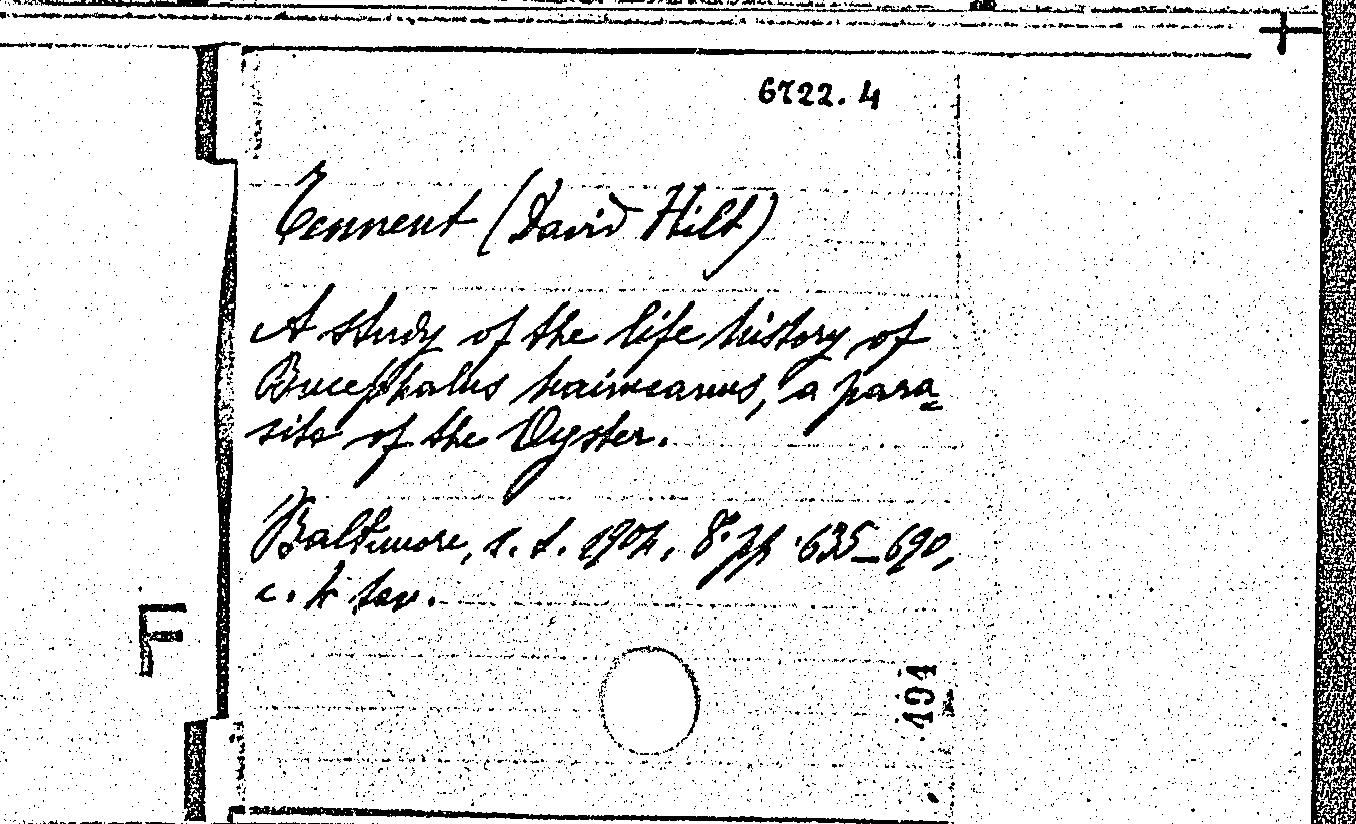 6722. 4
Tennent (David Hilt)
A study of the life history of
Bucephalus haimeanus, a para=
site of the Oyster.
Baltimore, s. t. 1906, 8. pp. 635_690,
c. 4 tav.
494
F